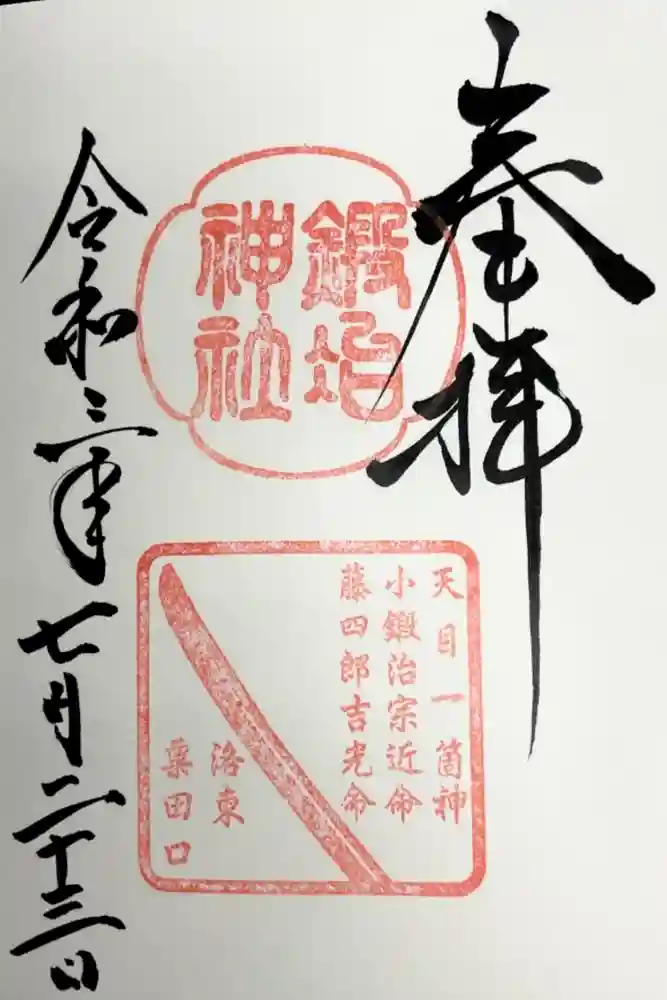 奉拝
鍛冶
神社
天目一箇神
小鍛冶宗近命
藤四郎吉光命
洛東
粟田口
令和三年七月二十三日